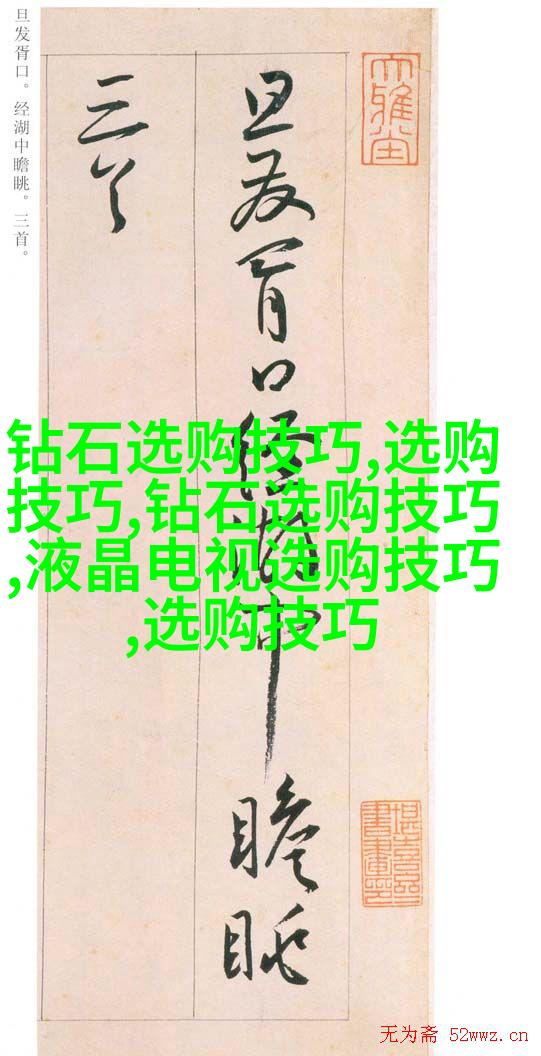 旦发胥口。经湖中瞻眺。三首。
旦发胥口经湖中瞻眺
三首
大雅堂
钻石选购技巧,选购
技巧,钻石选购技巧
,液晶电视选购技巧
,选购技巧
无为斋 52wwz.cn